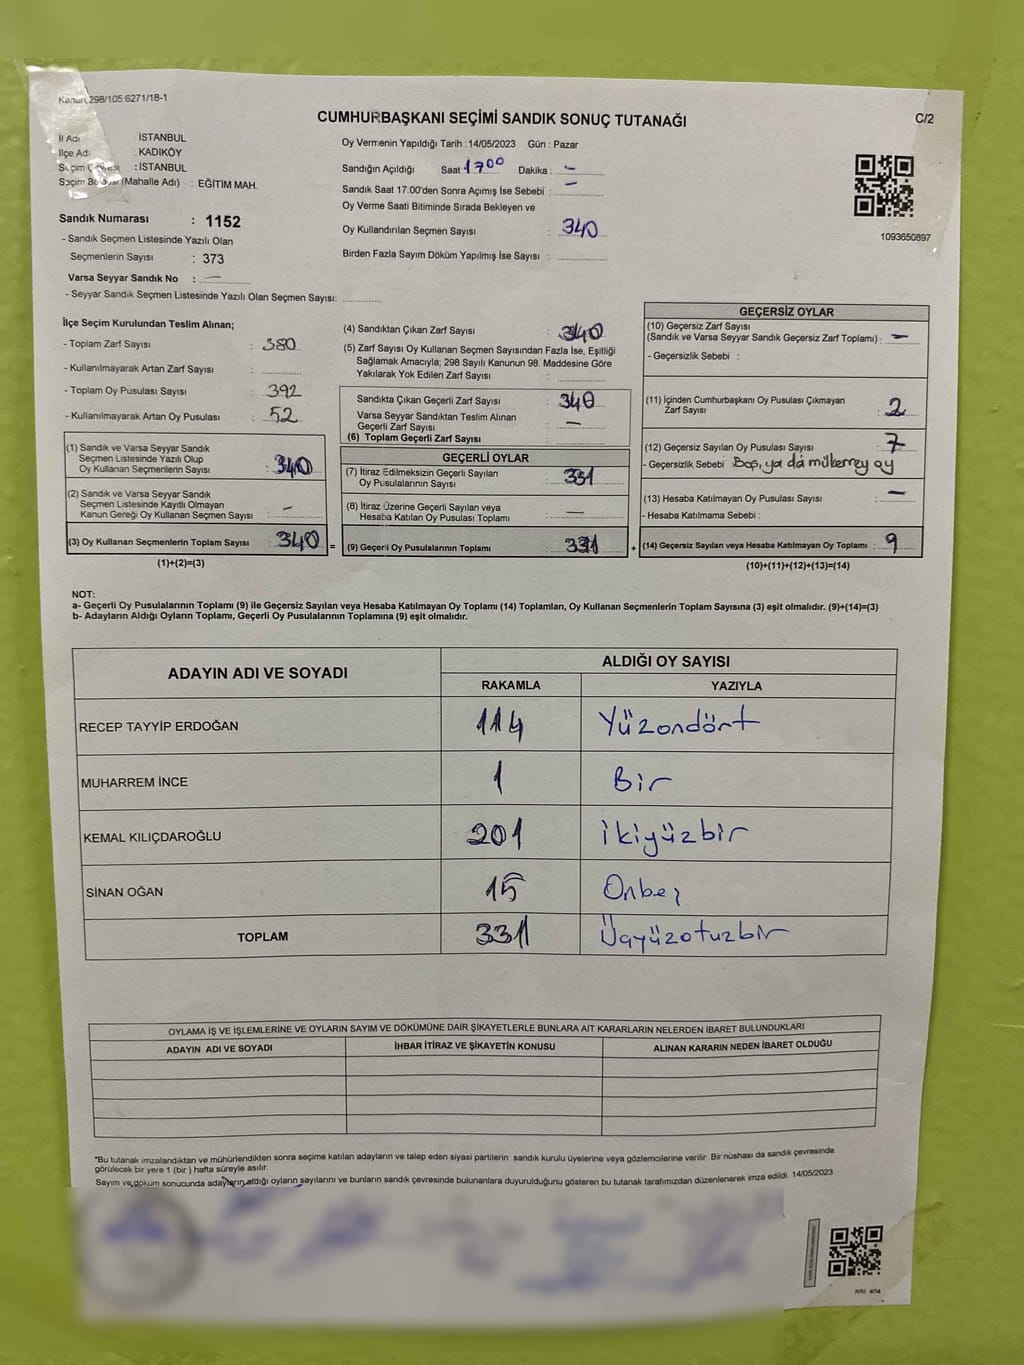 Kanun 298/105 6271/18-1
CUMHURBAŞKANI SEÇİMİ SANDIK SONUÇ TUTANAĞI
C/2
İl Adı : İSTANBUL
İlçe Adı : KADIKÖY
Seçim Çevresi : İSTANBUL
Seçim Bölgesi (Mahalle Adı) : EĞİTİM MAH.
Sandık Numarası : 1152
- Sandık Seçmen Listesinde Yazılı Olan
Seçmenlerin Sayısı : 373
Varsa Seyyar Sandık No : —
- Seyyar Sandık Seçmen Listesinde Yazılı Olan Seçmen Sayısı:
Oy Vermenin Yapıldığı Tarih : 14/05/2023 Gün : Pazar
Sandığın Açıldığı Saat 17 00 Dakika : —
Sandık Saat 17.00'den Sonra Açımış İse Sebebi : —
Oy Verme Saati Bitiminde Sırada Bekleyen ve
Oy Kullandırılan Seçmen Sayısı : 340
Birden Fazla Sayım Döküm Yapılmış İse Sayısı :
1093650897
İlçe Seçim Kurulundan Teslim Alınan;
- Toplam Zarf Sayısı : 380
- Kullanılmayarak Artan Zarf Sayısı :
- Toplam Oy Pusulası Sayısı : 392
- Kullanılmayarak Artan Oy Pusulası : 52
(1) Sandık ve Varsa Seyyar Sandık
Seçmen Listesinde Yazılı Olup
Oy Kullanan Seçmenlerin Sayısı : 340
(2) Sandık ve Varsa Seyyar Sandık
Seçmen Listesinde Kayıtlı Olmayan
Kanun Gereği Oy Kullanan Seçmen Sayısı : —
(3) Oy Kullanan Seçmenlerin Toplam Sayısı : 340 =
(1)+(2)=(3)
(4) Sandıktan Çıkan Zarf Sayısı : 340
(5) Zarf Sayısı Oy Kullanan Seçmen Sayısından Fazla İse, Eşitliği
Sağlamak Amacıyla, 298 Sayılı Kanunun 98. Maddesine Göre
Yakılarak Yok Edilen Zarf Sayısı :
Sandıkta Çıkan Geçerli Zarf Sayısı : 340
Varsa Seyyar Sandıktan Teslim Alınan
Geçerli Zarf Sayısı : —
(6) Toplam Geçerli Zarf Sayısı :
GEÇERLİ OYLAR
(7) İtiraz Edilmeksizin Geçerli Sayılan
Oy Pusulalarının Sayısı : 331
(8) İtiraz Üzerine Geçerli Sayılan veya
Hesaba Katılan Oy Pusulası Toplamı : —
(9) Geçerli Oy Pusulalarının Toplamı : 331 +
GEÇERSİZ OYLAR
(10) Geçersiz Zarf Sayısı
(Sandık ve Varsa Seyyar Sandık Geçersiz Zarf Toplamı) : —
- Geçersizlik Sebebi :
(11) İçinden Cumhurbaşkanı Oy Pusulası Çıkmayan
Zarf Sayısı : 2
(12) Geçersiz Sayılan Oy Pusulası Sayısı : 7
- Geçersizlik Sebebi Boş, ya da mükerrey oy
(13) Hesaba Katılmayan Oy Pusulası Sayısı : —
- Hesaba Katılmama Sebebi :
(14) Geçersiz Sayılan veya Hesaba Katılmayan Oy Toplamı : 9
(10)+(11)+(12)+(13)=(14)
NOT:
a- Geçerli Oy Pusulalarının Toplamı (9) ile Geçersiz Sayılan veya Hesaba Katılmayan Oy Toplamı (14) Toplamları, Oy Kullanan Seçmenlerin Toplam Sayısına (3) eşit olmalıdır. (9)+(14)=(3)
b- Adayların Aldığı Oyların Toplamı, Geçerli Oy Pusulalarının Toplamına (9) eşit olmalıdır.
ADAYIN ADI VE SOYADI
ALDIĞI OY SAYISI
RAKAMLA YAZIYLA
RECEP TAYYİP ERDOĞAN 114 Yüzondört
MUHARREM İNCE 1 Bir
KEMAL KILIÇDAROĞLU 201 İkiyüzbir
SİNAN OĞAN 15 Onbeş
TOPLAM 331 Üçyüzotuzbir
OYLAMA İŞ VE İŞLEMLERİNE VE OYLARIN SAYIM VE DÖKÜMÜNE DAİR ŞİKAYETLERLE BUNLARA AİT KARARLARIN NELERDEN İBARET BULUNDUKLARI
ADAYIN ADI VE SOYADI İHBAR İTİRAZ VE ŞİKAYETİN KONUSU ALINAN KARARIN NEDEN İBARET OLDUĞU
*Bu tutanak imzalandıktan ve mühürlendikten sonra seçime katılan adayların ve talep eden siyasi partilerin sandık kurulu üyelerine veya gözlemcilerine verilir. Bir nüshası da sandık çevresinde
görülecek bir yere 1 (bir) hafta süreyle asılır.
Sayım ve döküm sonucunda adayların aldığı oyların sayılarını ve bunların sandık çevresinde bulunanlara duyurulduğunu gösteren bu tutanak tarafımızdan düzenlenerek imza edildi. 14/05/2023